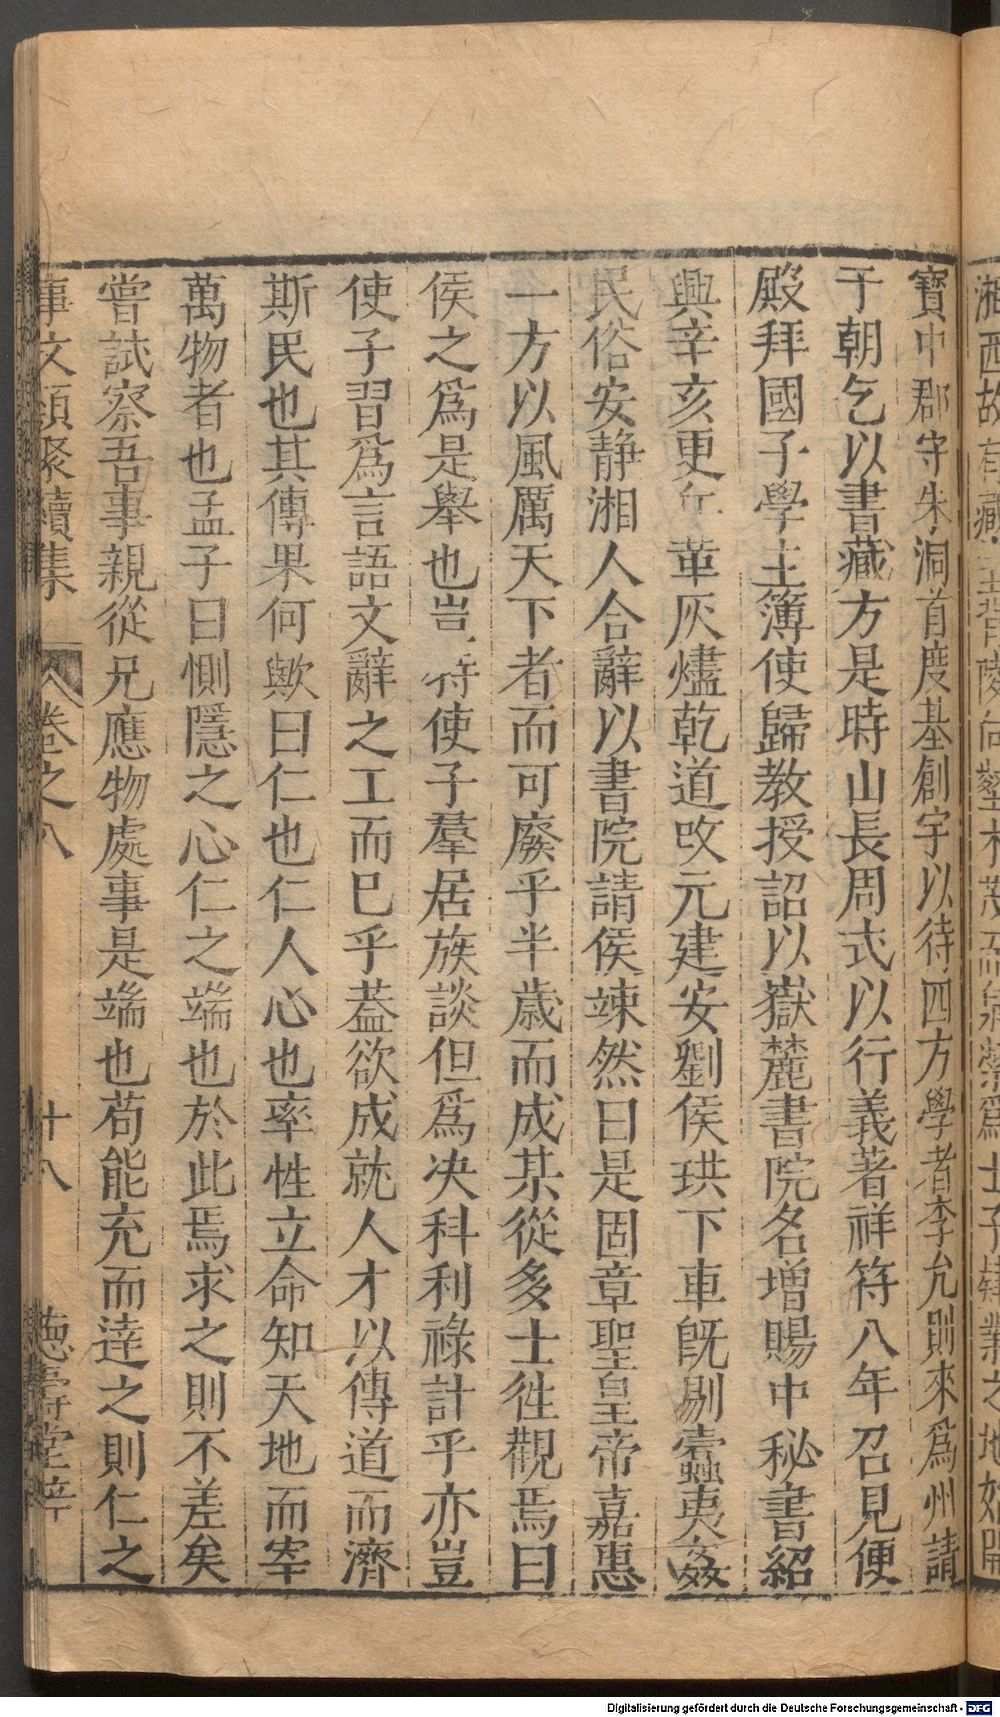 寶中郡守朱洞首度基創宇以待四方學者李允則來爲州請
于朝乞以書藏方是時山長周式以行義著祥符八年召見便
殿拜國子學主簿使歸教授詔以嶽麓書院名增賜中秘書紹
興辛亥更兵革灰燼乾道改元建安劉侯珙下車旣剔蠧夷姦
民俗安静湘人合辭以書院請侯竦然曰是固章聖皇帝嘉惠
一方以風厲天下者而可廢乎半歲而成某從多士徃觀焉曰
侯之爲是舉也豈特使子羣居族談但爲决科利祿計乎亦豈
使子習爲言語文辭之工而巳乎葢欲成就人才以傳道而濟
斯民也其傳果何歟曰仁也仁人心也率性立命知天地而宰
萬物者也孟子曰惻隱之心仁之端也於此焉求之則不差矣
嘗試察吾事親從兄應物處事是端也苟能充而達之則仁之
事文類聚續集 卷之八 十八 德壽堂梓
Digitalisierung gefördert durch die Deutsche Forschungsgemeinschaft - DFG